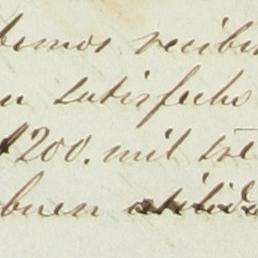 bemos recibi
n satisfecho
$200. mil tre
buen